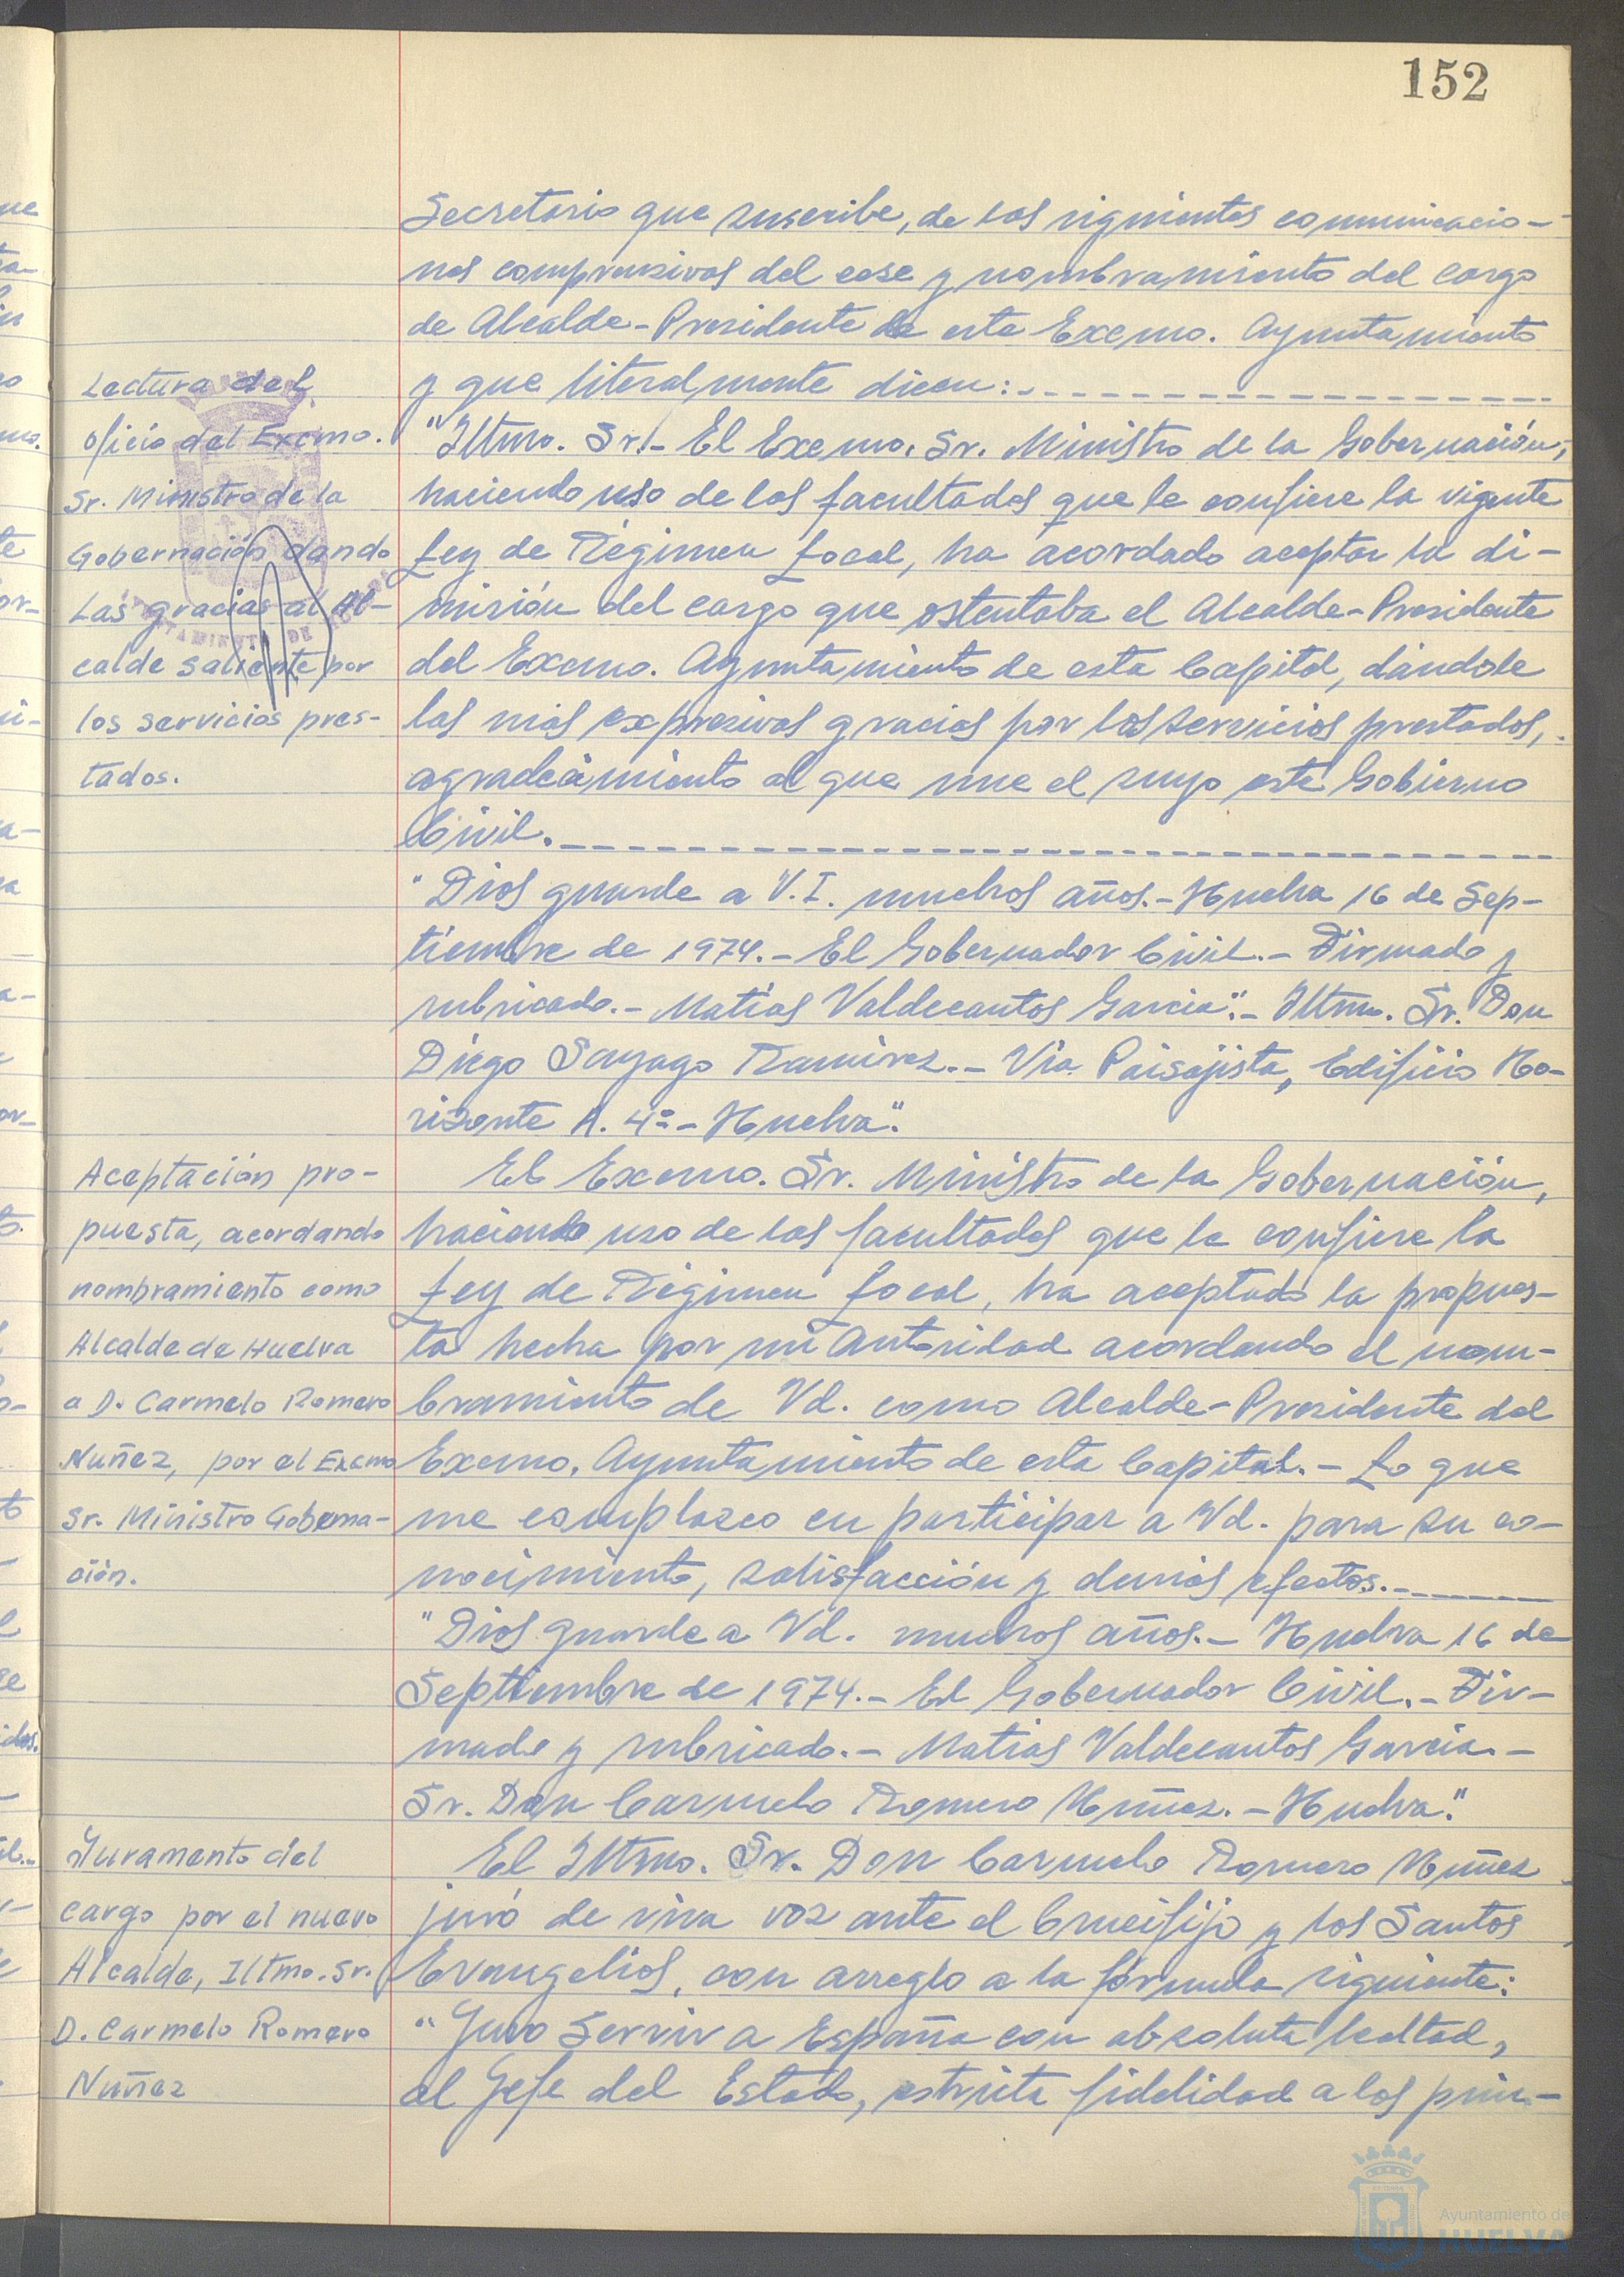 152
Secretario que suscribe, de las siguientes comunicacio-
nes comprensivas del cese y nombramiento del cargo
de Alcalde-Presidente de este Excmo. Ayuntamiento
y que literalmente dicen:
Lectura del
oficio del Excmo.
Sr. Ministro de la
Gobernación dando
las gracias al Al-
calde saliente por
los servicios pres-
tados.
"Iltmo. Sr.- El Excmo. Sr. Ministro de la Gobernación,
haciendo uso de las facultades que le confiere la vigente
Ley de Régimen Local, ha acordado aceptar la di-
misión del cargo que ostentaba el Alcalde-Presidente
del Excmo. Ayuntamiento de esta Capital, dándole
las más expresivas gracias por los servicios prestados,
agradecimiento al que une el suyo este Gobierno
Civil.
"Dios guarde a V.I. muchos años.- Huelva 16 de Sep-
tiembre de 1974.- El Gobernador Civil.- Firmado y
rubricado.- Matías Valdecantos García".- Iltmo. Sr. Don
Diego Sayago Ramirez.- Vía Paisajista, Edificio Ho-
rizonte A. 4º- Huelva".
Aceptación pro-
puesta, acordando
nombramiento como
Alcalde de Huelva
a D. Carmelo Romero
Nuñez, por el Excmo
Sr. Ministro Goberna-
ción.
El Excmo. Sr. Ministro de la Gobernación,
haciendo uso de las facultades que le confiere la
Ley de Régimen Local, ha aceptado la propues-
ta hecha por mi Autoridad acordando el nom-
bramiento de Vd. como Alcalde-Presidente del
Excmo. Ayuntamiento de esta Capital.- Lo que
me complazco en participar a Vd. para su co-
nocimiento, satisfacción y demás efectos.
"Dios guarde a Vd. muchos años.- Huelva 16 de
Septiembre de 1974.- El Gobernador Civil.- Fir-
mado y rubricado.- Matias Valdecantos García.-
Sr. Don Carmelo Romero Nuñez.- Huelva".
Juramento del
cargo por el nuevo
Alcalde, Iltmo. Sr.
D. Carmelo Romero
Nuñez
El Iltmo. Sr. Don Carmelo Romero Nuñez
juró de viva voz ante el Crucifijo y los Santos
Evangelios, con arreglo a la fórmula siguiente:
"Juro Servir a España con absoluta lealtad,
al Jefe del Estado, estricta fidelidad a los prin-
Ayuntamiento de
HUELVA